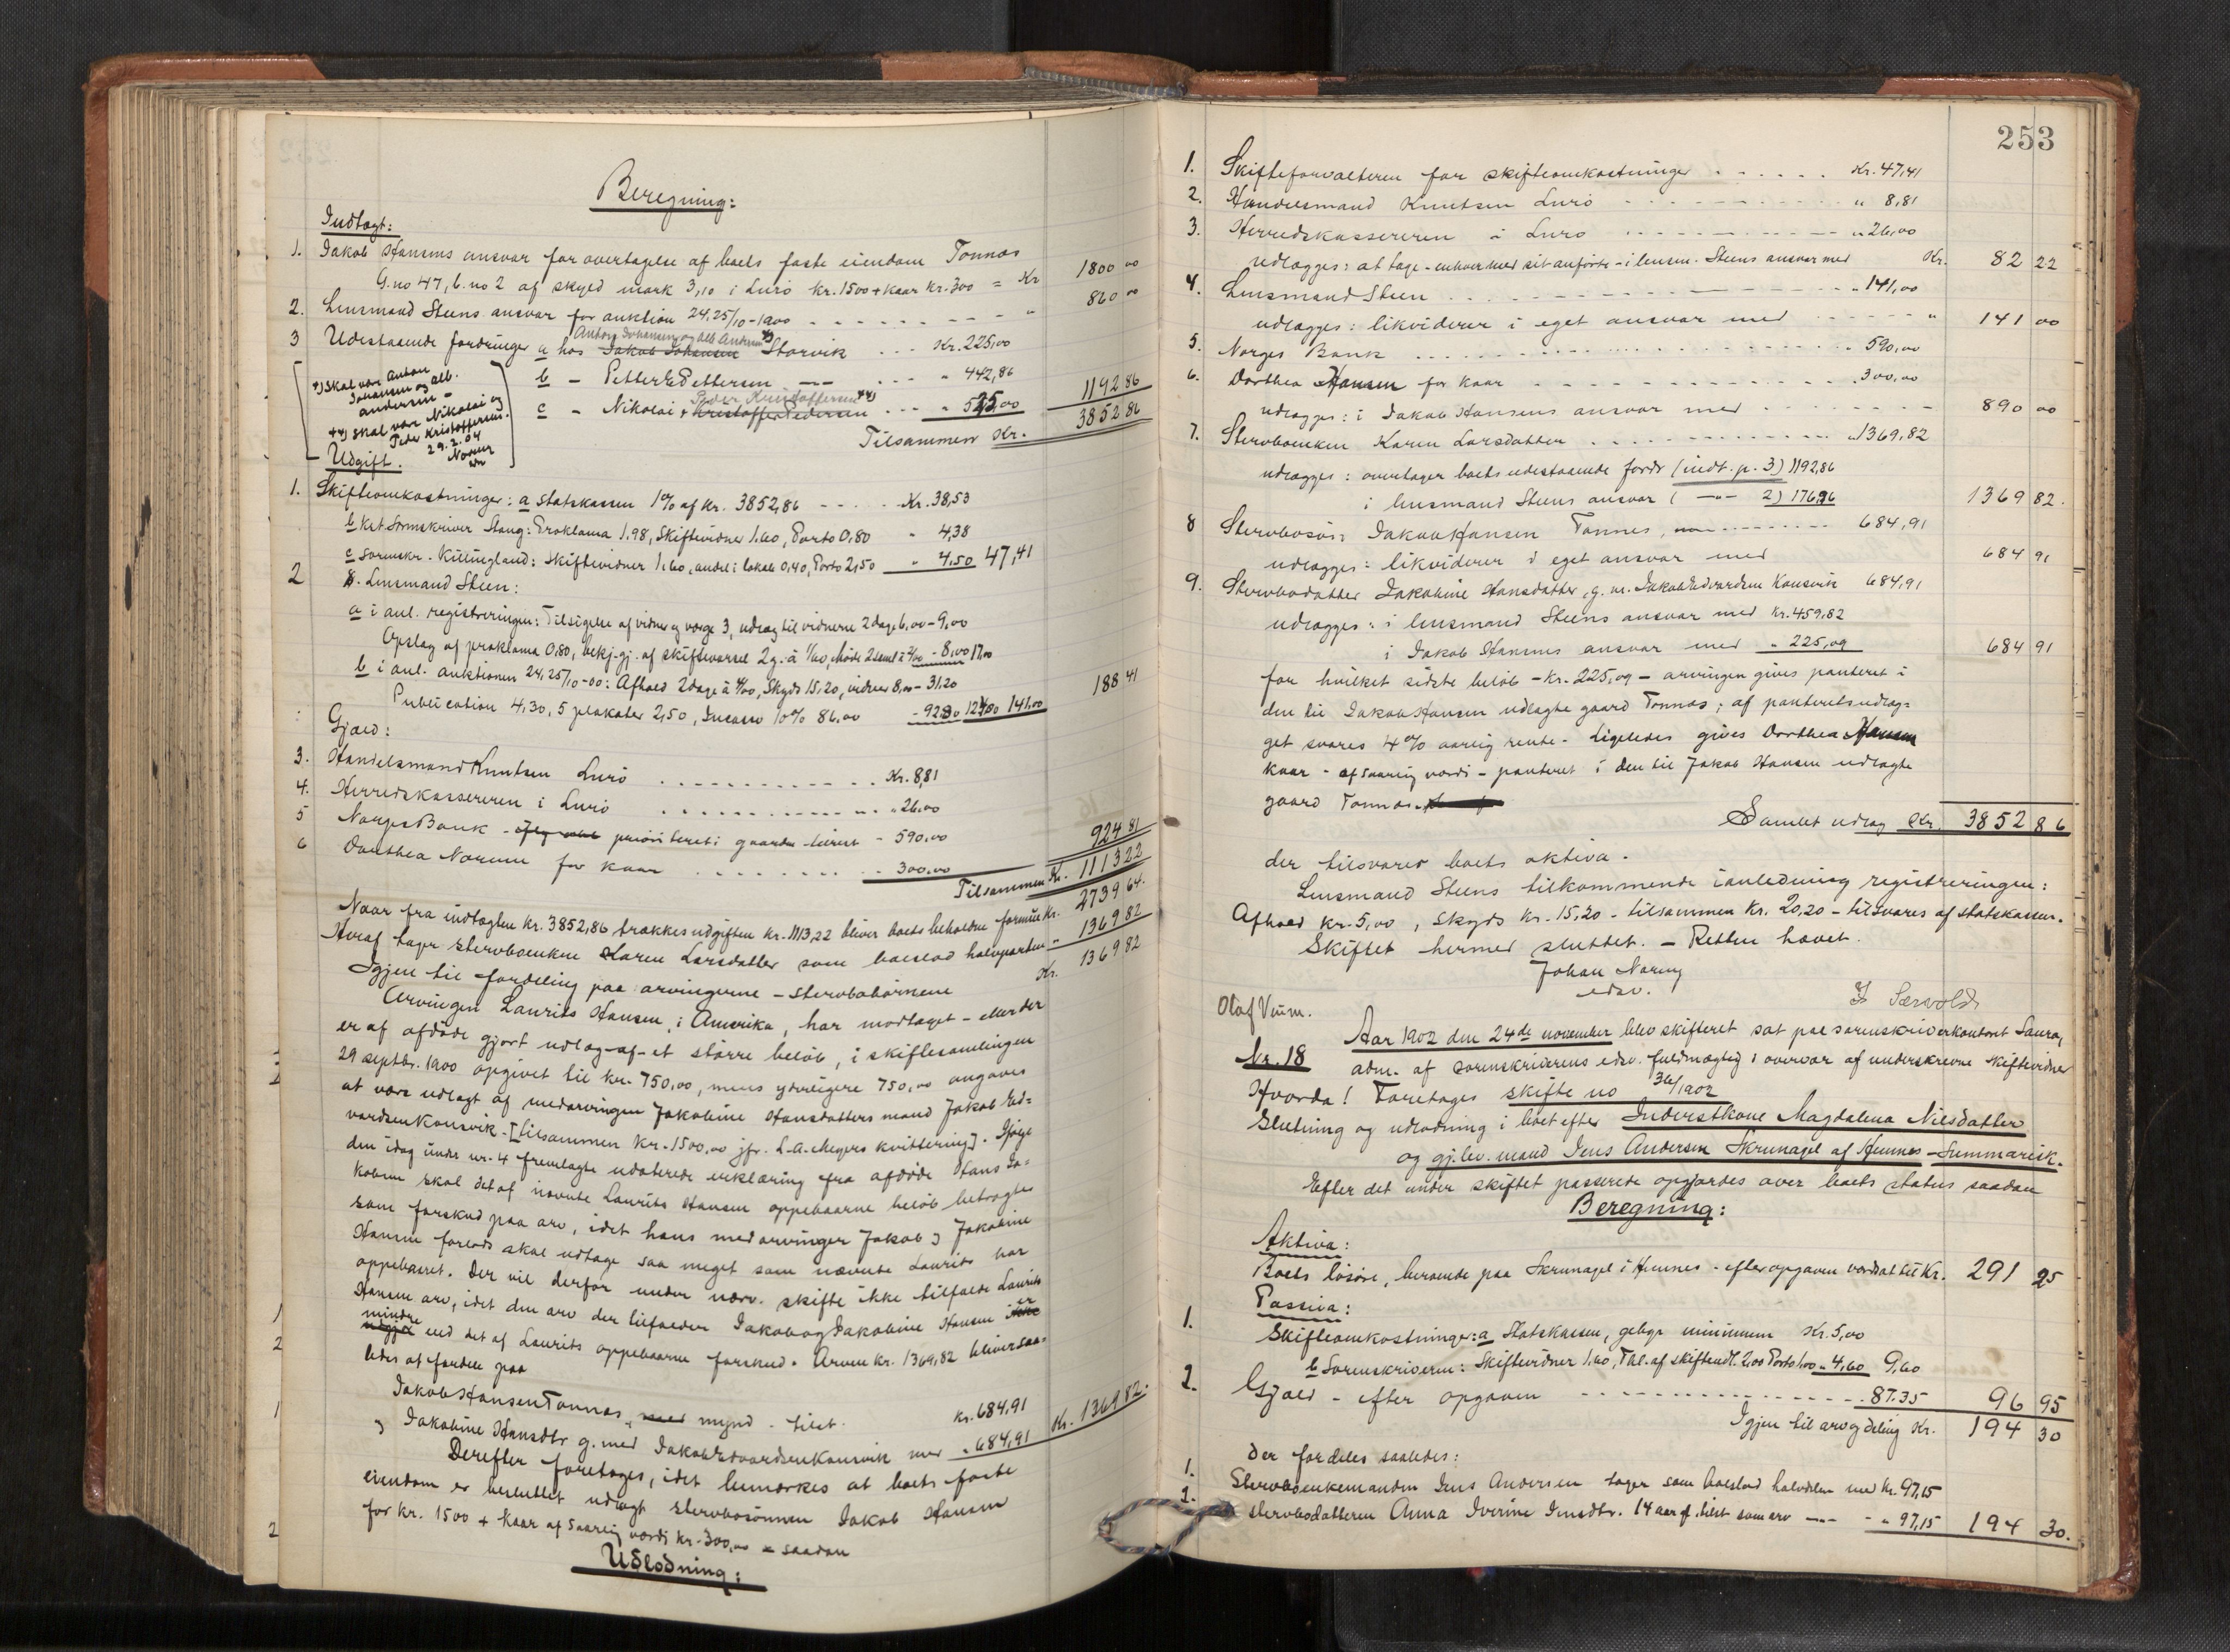 Beregning:
Indtægt:
1. Jakob Hansens ansvar for overtagelse af boets faste eiendom Tonnes
G. no 47, b. no 2 af skyld mark 3,10 i Lurö kr. 1500 + kaar kr. 300 = Kr 1800 00
2. Lensmand Steens ansvar for auktion 24. 25/10 - 1900 . . . . . . . - - " 860 00
3 Udestaaende fordringer a hos Jakob Johansen Anton Johansen og Alb Andersen +) Storvik . . . Kr. 225,00
b - Petter E Pettersen - - - . . . " 442,86
c - Nikolai + Kristoffer Pedersen Peder Kristoffersen ++) . . . " 525,00 1192 86
Tilsammen Kr. 3852 86
+) Skal være Anton
Johansen og Alb.
Andersen -
++) skal være Nikolai og
Peder Kristoffersen.
29.2.04
Norum
Udgift.
1. Skifteomkostninger: a Statskassen 1% af Kr. 3852,86 - - - . . Kr. 38,53
b kst. Sörnskriver Stang: Proklama 1.98, Skiftevidner 1.60, Porto 0,80 " 4,38
c sorenskr. Killingland: Skiftevidner 1,60, andel i lokale 0,40, Porto 2,50 " 4,50 47,41
2 Lensmand Steen:
a i anl. registreringen: Tilsigelse af vidner og værge 3, udlæg til vidnerne 2 dage 6,00 - 9,00
Opslag af proklama 0,80, bekj. gj. af skiftevarsel 2 g. à 1/60, Möde 2 saml à 2/00 - 8,00 17,00
b i anl. auktionen 24, 25/10-00: Afhold 2 dage à 4/00, Skyds 15,20, vidner 8,00 - 31,20
Publication 4,30, 5 plakater 2,50, Incasso 10% 86.00 - 92,80 124,00 141,00 188 41
Gjæld:
3. Handelsmand Knutsen Lurö . . . . . . . . . . Kr. 8,81
4. Herredskassereren i Lurö . . . . . . . . . . " 26,00
5 Norges Bank - prioriteret i gaarden - 590,00
6 Dorthea Norum for kaar . . . . . . . . 300,00 924 81
Tilsammen Kr. 1113 22
Naar fra indtægten kr. 3852,86 trækkes udgiften kr. 1113,22 bliver boets beholdne formue Kr. 2739 64.
Heraf tager stervboenken Karen Larsdatter som boeslod halvparten - " 1369 82
Igjen til fordeling paa arvingerne - stervbobörnene Kr. 1369 82
Arvingen Laurits Hansen, i Amerika, har modtaget - eller der
er af afdöde gjort udlæg af - et större belöb, i skiftesamlingen
29 septbr. 1900 opgivet til kr. 750,00, mens yderligere 750,00 angaves
at være udlagt af medarvingen Jakobine Hansdatters mand Jakob Ed-
vardsen Konsvik. - [tilsammen kr. 1500,00 jfr. L. A. Meyers kvittering]. Ifölge
den idag under nr. 4 fremlagte udaterede erklæring fra afdöde Hans Ja-
kobsen skal det af nævnte Laurits Hansen oppebaarne belöb betragtes
som forskud paa arv, idet hans medarvinger Jakob og Jakobine
Hansen forlods skal udtage saa meget som nævnte Laurits har
oppebaaret. Der vil derfor under nærv. skifte ikke tilfalde Laurits
Hansen arv, idet den arv der tilfalder Jakob og Jakobine Hansen er
mindre end det af Laurits oppebaarne forskud. Arven kr. 1369,82 bliver saa-
ledes at fordele paa
Jakob Hansen Tonnes, mynd. - tilst. kr. 684,91
og Jakobine Hansdtr g. med Jakob Edvardsen Konsvik med " 684,91 Kr. 1369 82.
Derefter foretages, idet bemærkes at boets faste
eiendom er besluttet udlagt stervbosönnen Jakob Hansen
for kr. 1500 + kaar af 5 aarlig værdi kr. 300,00 saadan
Udlodning:
253
1. Skifteforvalteren for skifteomkostninger . . . . . . Kr. 47,41
2. Handelsmand Knutsen Lurö - - - - - - - - - " 8,81
3. Herredskassereren i Lurö . . . - - - - - - - " 26,00
udlægges: at tage - enhver med sit anförte - i lensm. Steens ansvar med Kr. 82 22
4. Lensmand Steen . . . - - - - - - - - - " 141,00
udlægges: likviderer i eget ansvar med - - - - - " 141 00
5. Norges Bank . . . . . . . . . . . . . . . . . 590,00
6. Dorthea Hansen for kaar - - - - - - - - - - 300,00
udlægges: i Jakob Hansens ansvar med - - - - - - 890 00
7. Stervboenken Karen Larsdatter . . . . - - - - - - - " 1369,82
udlægges: overtager boets udestaaende fordr (indt. p. 3) 1192,86
i lensmand Steens ansvar ( -"- 2) 176,96 1369 82.
8 Stervbosön: Jakob Hansen Tonnes, - - - - - - - 684,91
udlægges: likviderer i eget ansvar med 684 91
9. Stervbodatter Jakobine Hansdatter, g. m. Jakob Edvardsen Konsvik 684,91
udlægges: i lensmand Steens ansvar med kr. 459,82
i Jakob Hansens ansvar med " 225,09 684 91
for hvilket sidste belöb - kr. 225,09 - arvingen gives panteret i
den til Jakob Hansen udlagte gaard Tonnes; af panteretsudlæg-
get svares 4% aarlig rente. Ligeledes gives Dorthea Hansen
kaar - af 5 aarlig værdi - panteret i den til Jakob Hansen udlagte
gaard Tonnes.
Samlet udlæg Kr. 3852 86
der tilsvarer boets aktiva.
Lensmand Steens tilkommende i anledning registreringen:
Afhold kr. 5,00, Skyds kr. 15,20 - tilsammen kr. 20,20 - tilsvares af statskassen.
Skiftet hermed sluttet. - Retten hævet.
Johan Norum
edsv.
Olaf Vinm. Sørvold
Aar 1902 den 24de november blev skifteret sat paa sorenskriverkontoret Saura,
Nr. 18 adm. af sorenskriverens edsv. fuldmægtig i overvær af underskrevne skiftevidner
Hvorda! Foretages skifte no 36/1902
Slutning og udlodning i boet efter Inderstkone Magdalena Nilsdatter
og gj. lev. mand Jens Andersen Skrunagel af Hemnes - Summarisk.
Efter det under skiftet passerede opgjordes over boets status saadan
Beregning:
Aktiva:
Boets lösöre, beroende paa Skrunagel i Hemnes - efter opgaven værdsat til Kr. 291 25
Passiva:
1. Skifteomkostninger: a Statskassen, gebyr minimum Kr. 5,00
b Sorenskriveren: Skiftevidner 1,60, Tkl. af skifteudl. 2,00 Porto 1,00 " 4,60 9,60
2. Gjæld - efter opgaven - - - - - - - - - - - - 87.35 96 95
Igjen til arv og deling Kr. 194 30
der fordeles saaledes:
1. Stervboenkemanden Jens Andersen tager som boeslod halvdelen med kr. 97,15
2. stervbodatteren Anna Iverine Jensdtr. 14 aar gl. tilst som arv - - - " 97,15 194 30.